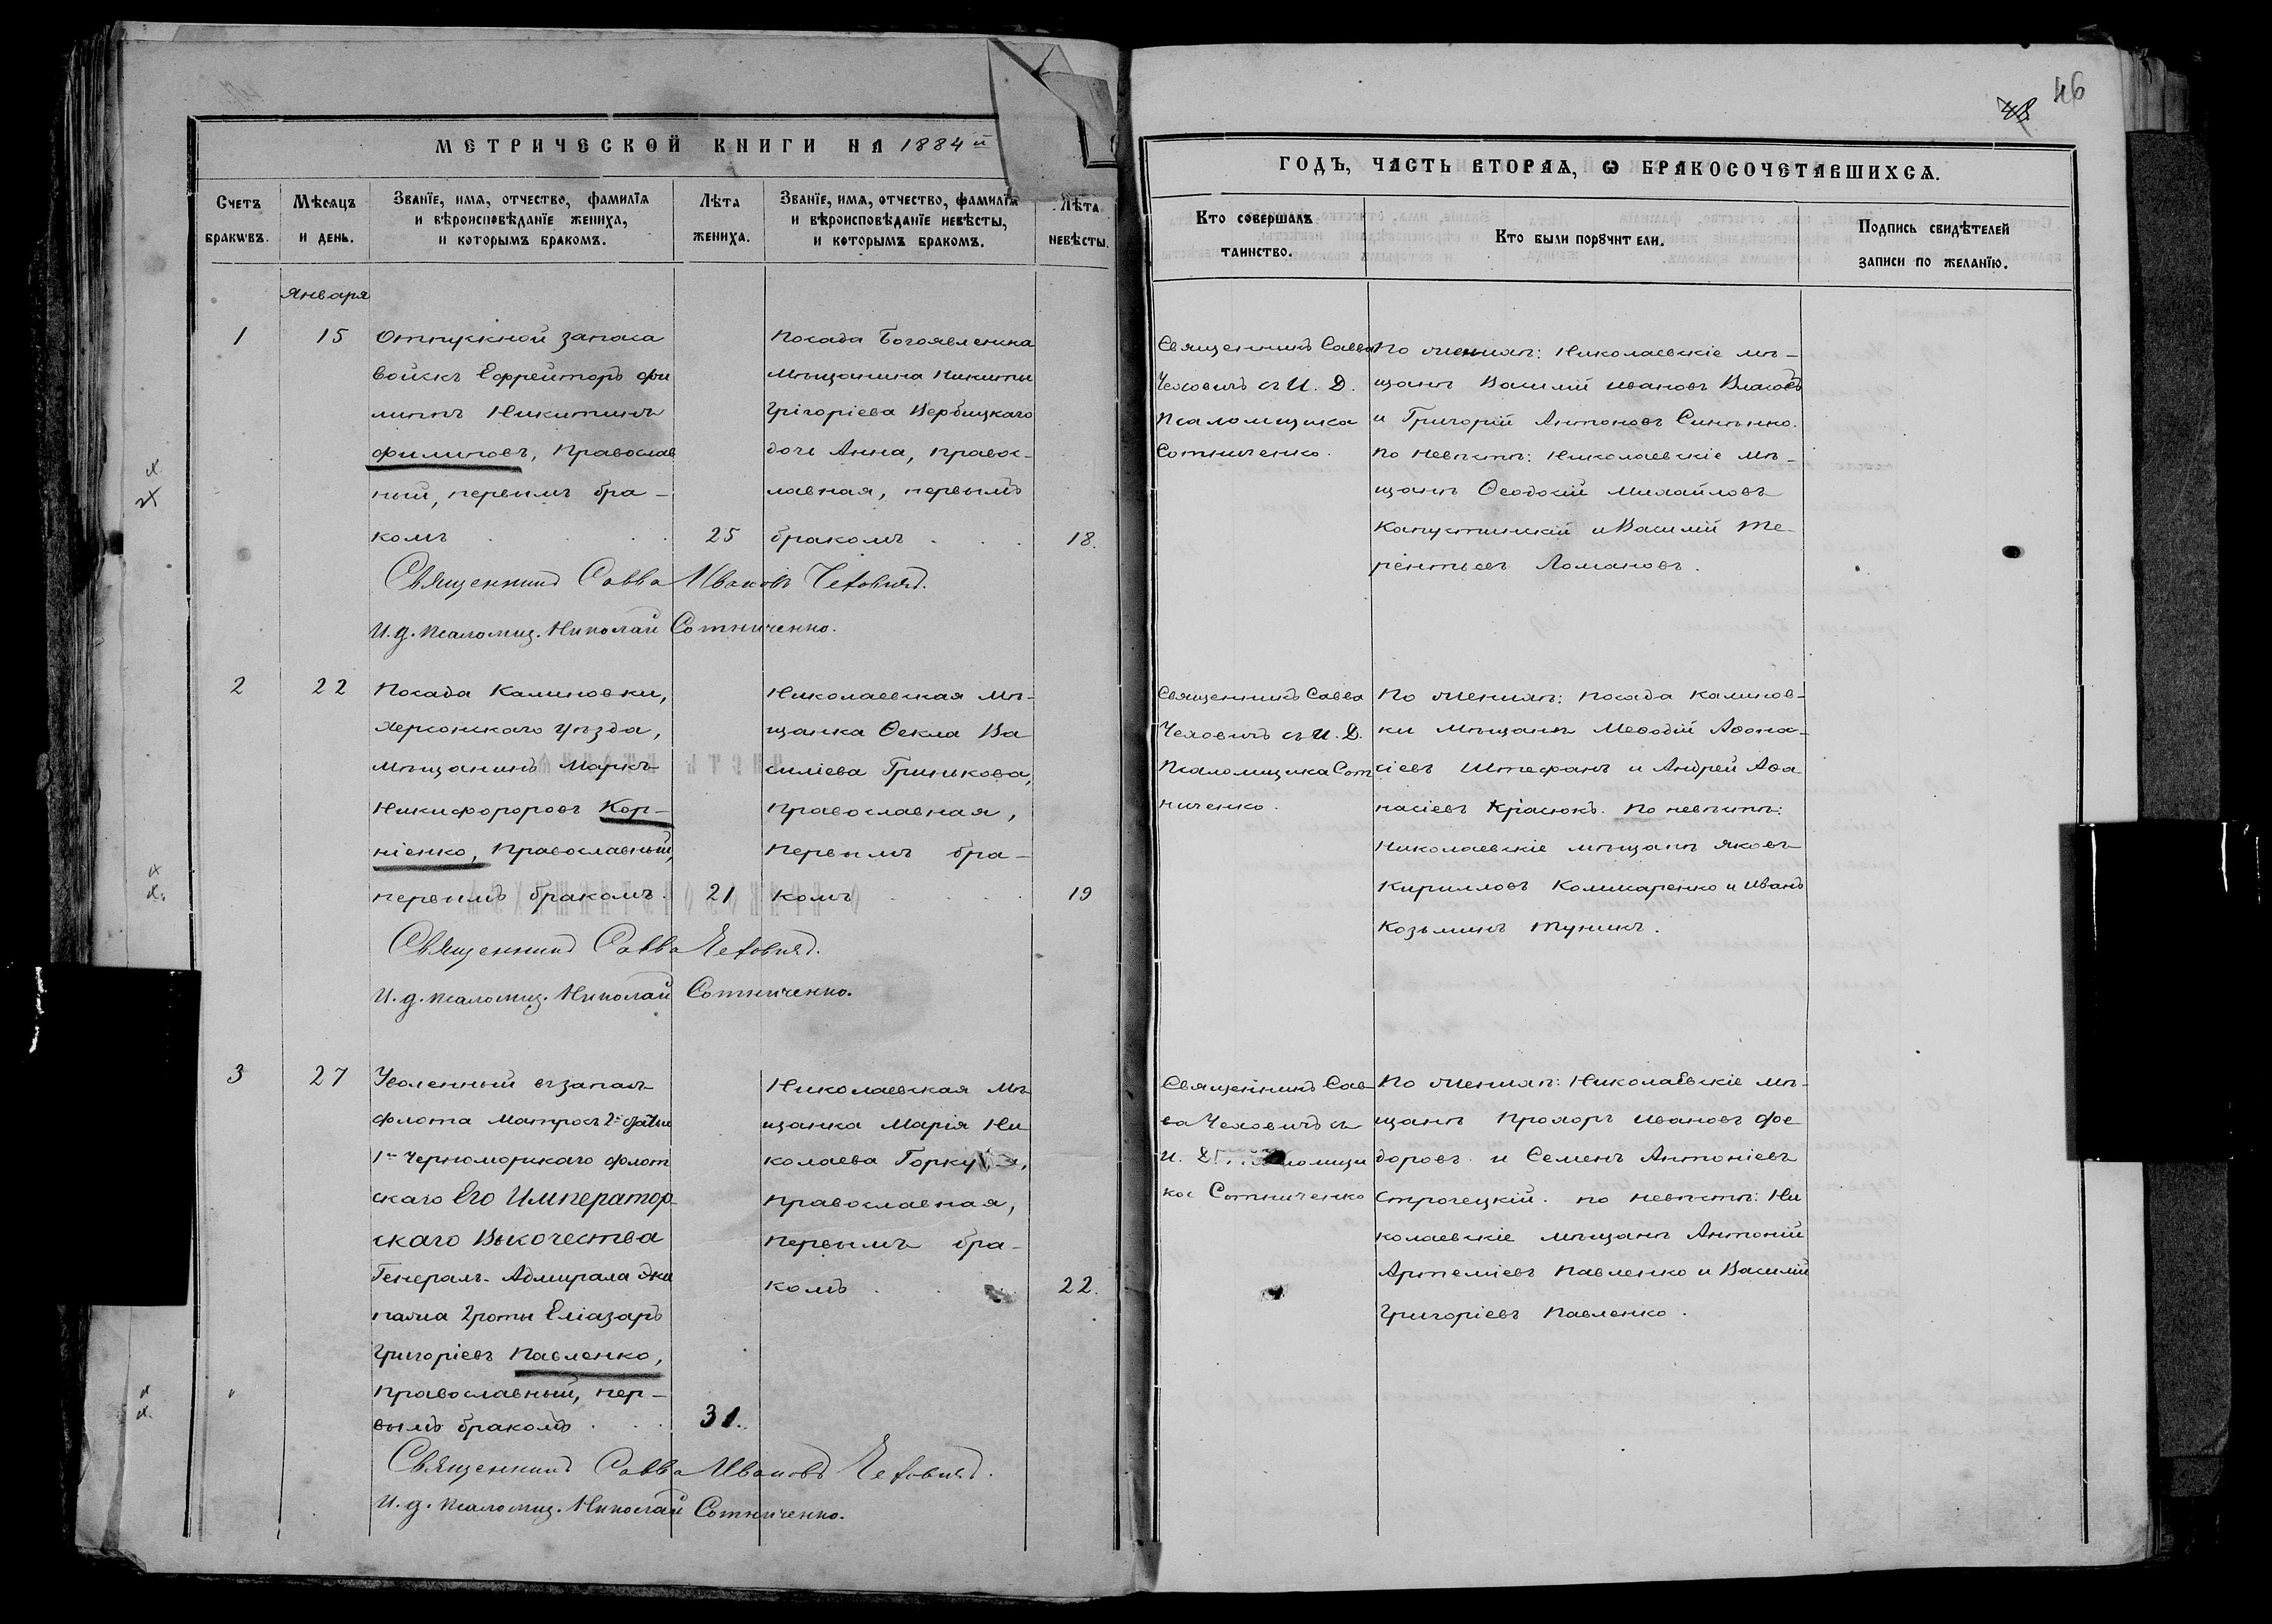 46
48
МЕТРИЧЕСКОЙ КНИГИ НА 1884й
ГОДЪ, ЧАСТЬ ВТОРАѦ, Ѡ БРАКОСОЧЕТАВШИХСѦ.
Счетъ браковъ.
Мѣсѧцъ и день.
Званїе, имѧ, отчество, фамилїѧ
и вѣроисповѣданїе жениха,
и которымъ бракомъ.
Лѣта жениха.
Званїе, имѧ, отчество, фамилїѧ
и вѣроисповѣданїе невѣсты,
и которымъ бракомъ.
Лѣта невѣсты.
Кто совершалъ
таинство.
Кто были порꙋчители.
Подпись свидѣтелей
записи по желанїю.
Января
1
15
Отпускной запаса
войскъ Ефрейторъ Фи
липпъ Никитинъ
Филиповъ, Православ
ный, первымъ бра-
комъ
25
Посада Богоявленска
мѣщанина Никиты
Григоріева Вербицкаго
дочь Анна, правос-
лавная, первымъ
бракомъ
18.
Священникъ Савва
Чеховичъ съ И. Д.
Псаломщика
Сотниченко.
По женихѣ: Николаевскіе мѣ-
щане Василій Ивановъ Власовъ
и Григорій Антоновъ Синѣнко.
По невѣстѣ: Николаевскіе мѣ-
щане Ѳеодосій Михайловъ
Капустинскій и Василій Те-
рентьевъ Ломановъ.
Священникъ Савва Ивановъ Чеховичъ.
И. д. псаломщ. Николай Сотниченко.
2
22
Посада Калиновки,
Херсонскаго уѣзда,
мѣщанинъ Маркъ
Никифороровъ Кор-
ніенко, Православный,
первымъ бракомъ.
21
Николаевская мѣ-
щанка Ѳекла Ва
силіева Гринькова,
православная,
первымъ бра-
комъ
19
Священникъ Савва
Чеховичъ съ И. Д.
Псаломщика Сот
ниченко.
По женихѣ: посада Калинов-
ки мѣщане Меѳодій Аѳона-
сіевъ Штефанъ и Андрей Аѳа
насіевъ Красюкъ. По невѣстѣ:
Николаевскіе мѣщане Яковъ
Кирилловъ Комисаренко и Иванъ
Козьминъ Туникъ.
Священникъ Савва Чеховичъ.
И. д. псаломщ. Николай Сотниченко.
3
27
Уволенный въ запасъ
флота матросъ 2й статьи
1го Черноморскаго флот
скаго Его Император-
скаго Высочества
Генералъ-Адмирала эки
пажа 2 роты Еліазаръ
Григоріевъ Павленко,
православный, пер-
вымъ бракомъ
31.
Николаевская мѣ-
щанка Марія Ни
колаева
православная,
первымъ бра-
комъ
22.
Священникъ Сав-
ва Чеховичъ съ
И. Д.
ка Сотниченко
По женихѣ: Николаевскіе мѣ-
щане Прохоръ Ивановъ Фе
доровъ и Семенъ Антоніевъ
Строчецкій. по невѣстѣ: Ни
колаевскіе мѣщане Антоній
Артеміевъ Павленко и Василій
Григоріевъ Павленко.
Священникъ Савва Ивановъ Чеховичъ.
И. д. псаломщ. Николай Сотниченко.